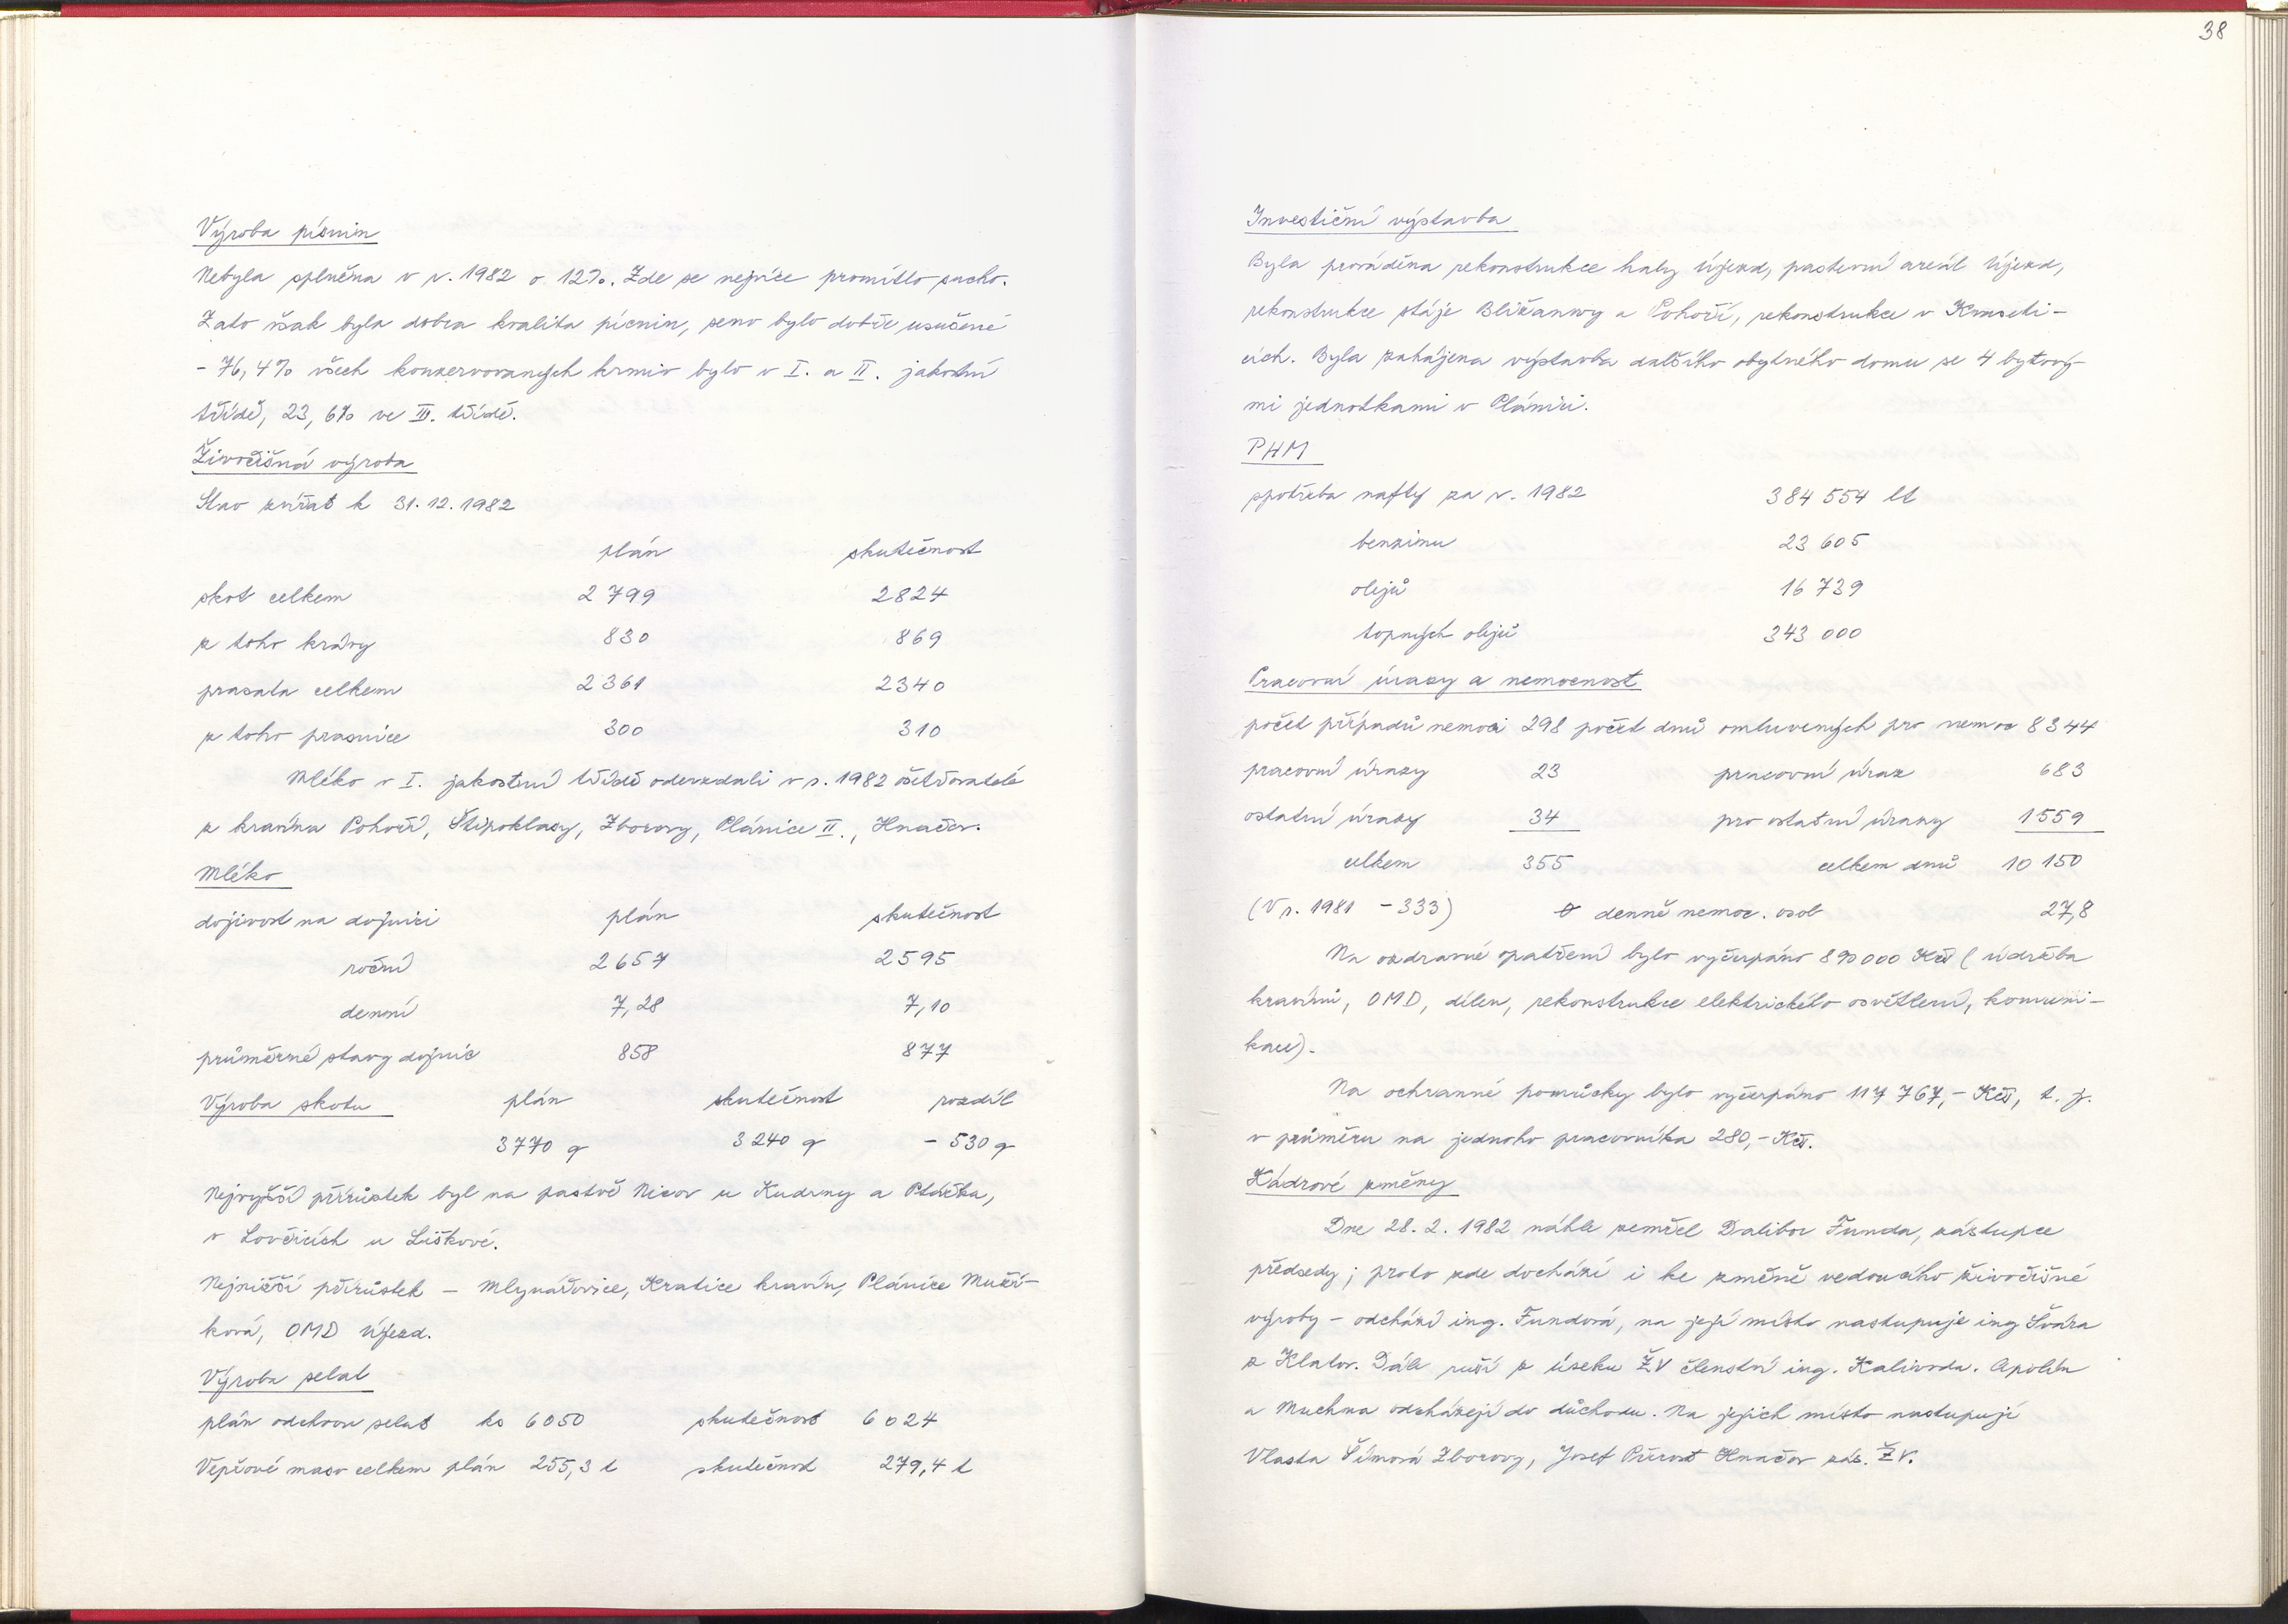 Výroba pícnin
Nebyla splněna v r. 1982 o 12%. Zde se nejvíce promítlo sucho.
Zato však byla dobra kvalita pícnin, seno bylo dobře usušené
- 76,4% všech konzervovaných krmiv bylo v I. a II. jakostní
třídě, 23,6% ve III. třídě.
Živočišná výroba
Stav zvířat k 31.12.1982
plán skutečnost
skot celkem 2 799 2824
z toho krávy 830 869
prasata celkem 2361 2340
z toho prasnice 300 310
Mléko v I. jakostní třídě odevzdali v r. 1982 ošetřovatelé
z kravína Pohoří, Štipoklasy, Zborovy, Plánice II., Hnačov.
Mléko
dojivost na dojnici plán skutečnost
roční 2657 2595
denní 7,28 7,10
průměrné stavy dojnic 858 877
Výroba skotu plán skutečnost rozdíl
3770 q 3240 q - 530 q
Nejvyšší přírůstek byl na pastvě Nicov u Kudrny a Ptáčka,
v Lovčicích u Liškové.
Nejnižší přírůstek - Mlynářovice, Kratice kravín, Plánice Muží-
ková, OMD Újezd.
Výroba selat
plán odchovu selat ks 6050 skutečnost 6024
Vepřové maso celkem plán 255,3 t skutečnost 279,4 t
38
Investiční výstavba
Byla prováděna rekonstrukce haly Újezd, pastevní areál Újezd,
rekonstrukce stáje Bližanovy a Pohoří, rekonstrukce v Kvaseti-
cích. Byla zahájena výstavba dalšího obytného domu se 4 bytový-
mi jednotkami v Plánici.
PHM
spotřeba nafty za r. 1982 384 554 lt
benzinu 23 605
olejů 16 739
topných olejů 343 000
Pracovní úrazy a nemocnost
počet případů nemoci 298 počet dnů omluvených pro nemoc 8344
pracovní úrazy 23 pracovní úraz 683
ostatní úrazy 34 pro ostatní úrazy 1559
celkem 355 celkem dnů 10 150
(V r. 1981 - 333) ø denně nemoc. osob 27,8
Na ozdravné opatření bylo vyčerpáno 890000 Kčs (údržba
kravínů, OMD, dílen, rekonstrukce elektrického osvětlení, komuni-
kace).
Na ochranné pomůcky bylo vyčerpáno 117 767,- Kčs, t. j.
v průměru na jednoho pracovníka 280,- Kčs.
Kádrové změny
Dne 28. 2. 1982 náhle zemřel Dalibor Funda, zástupce
předsedy; proto zde dochází i ke změně vedoucího živočišné
výroby - odchází ing. Fundová, na její místo nastupuje ing Švára
z Klatov. Dále ruší z úseku ŽV členství ing. Kalivoda. Apolín
a Muchna odcházejí do důchodu. Na jejich místo nastupují
Vlasta Šímová Zborovy, Josef Přerost Hnačov zás. ŽV.